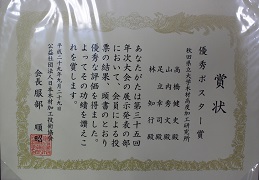 賞状
優秀ポスター賞
秋田県立大学木材高度加工研究所
高橋健史殿
山内秀文殿
足立幸司殿
林知行殿
あなたがたは第三十五回
年次大会の展示発表の部
において、会員による投
票の結果、頭書のとおり
優秀な評価を得ました。
よってその功績を讃えこ
れを賞します。
平成二十九年九月二十九日
公益社団法人日本木材加工技術協会
会長服部順昭